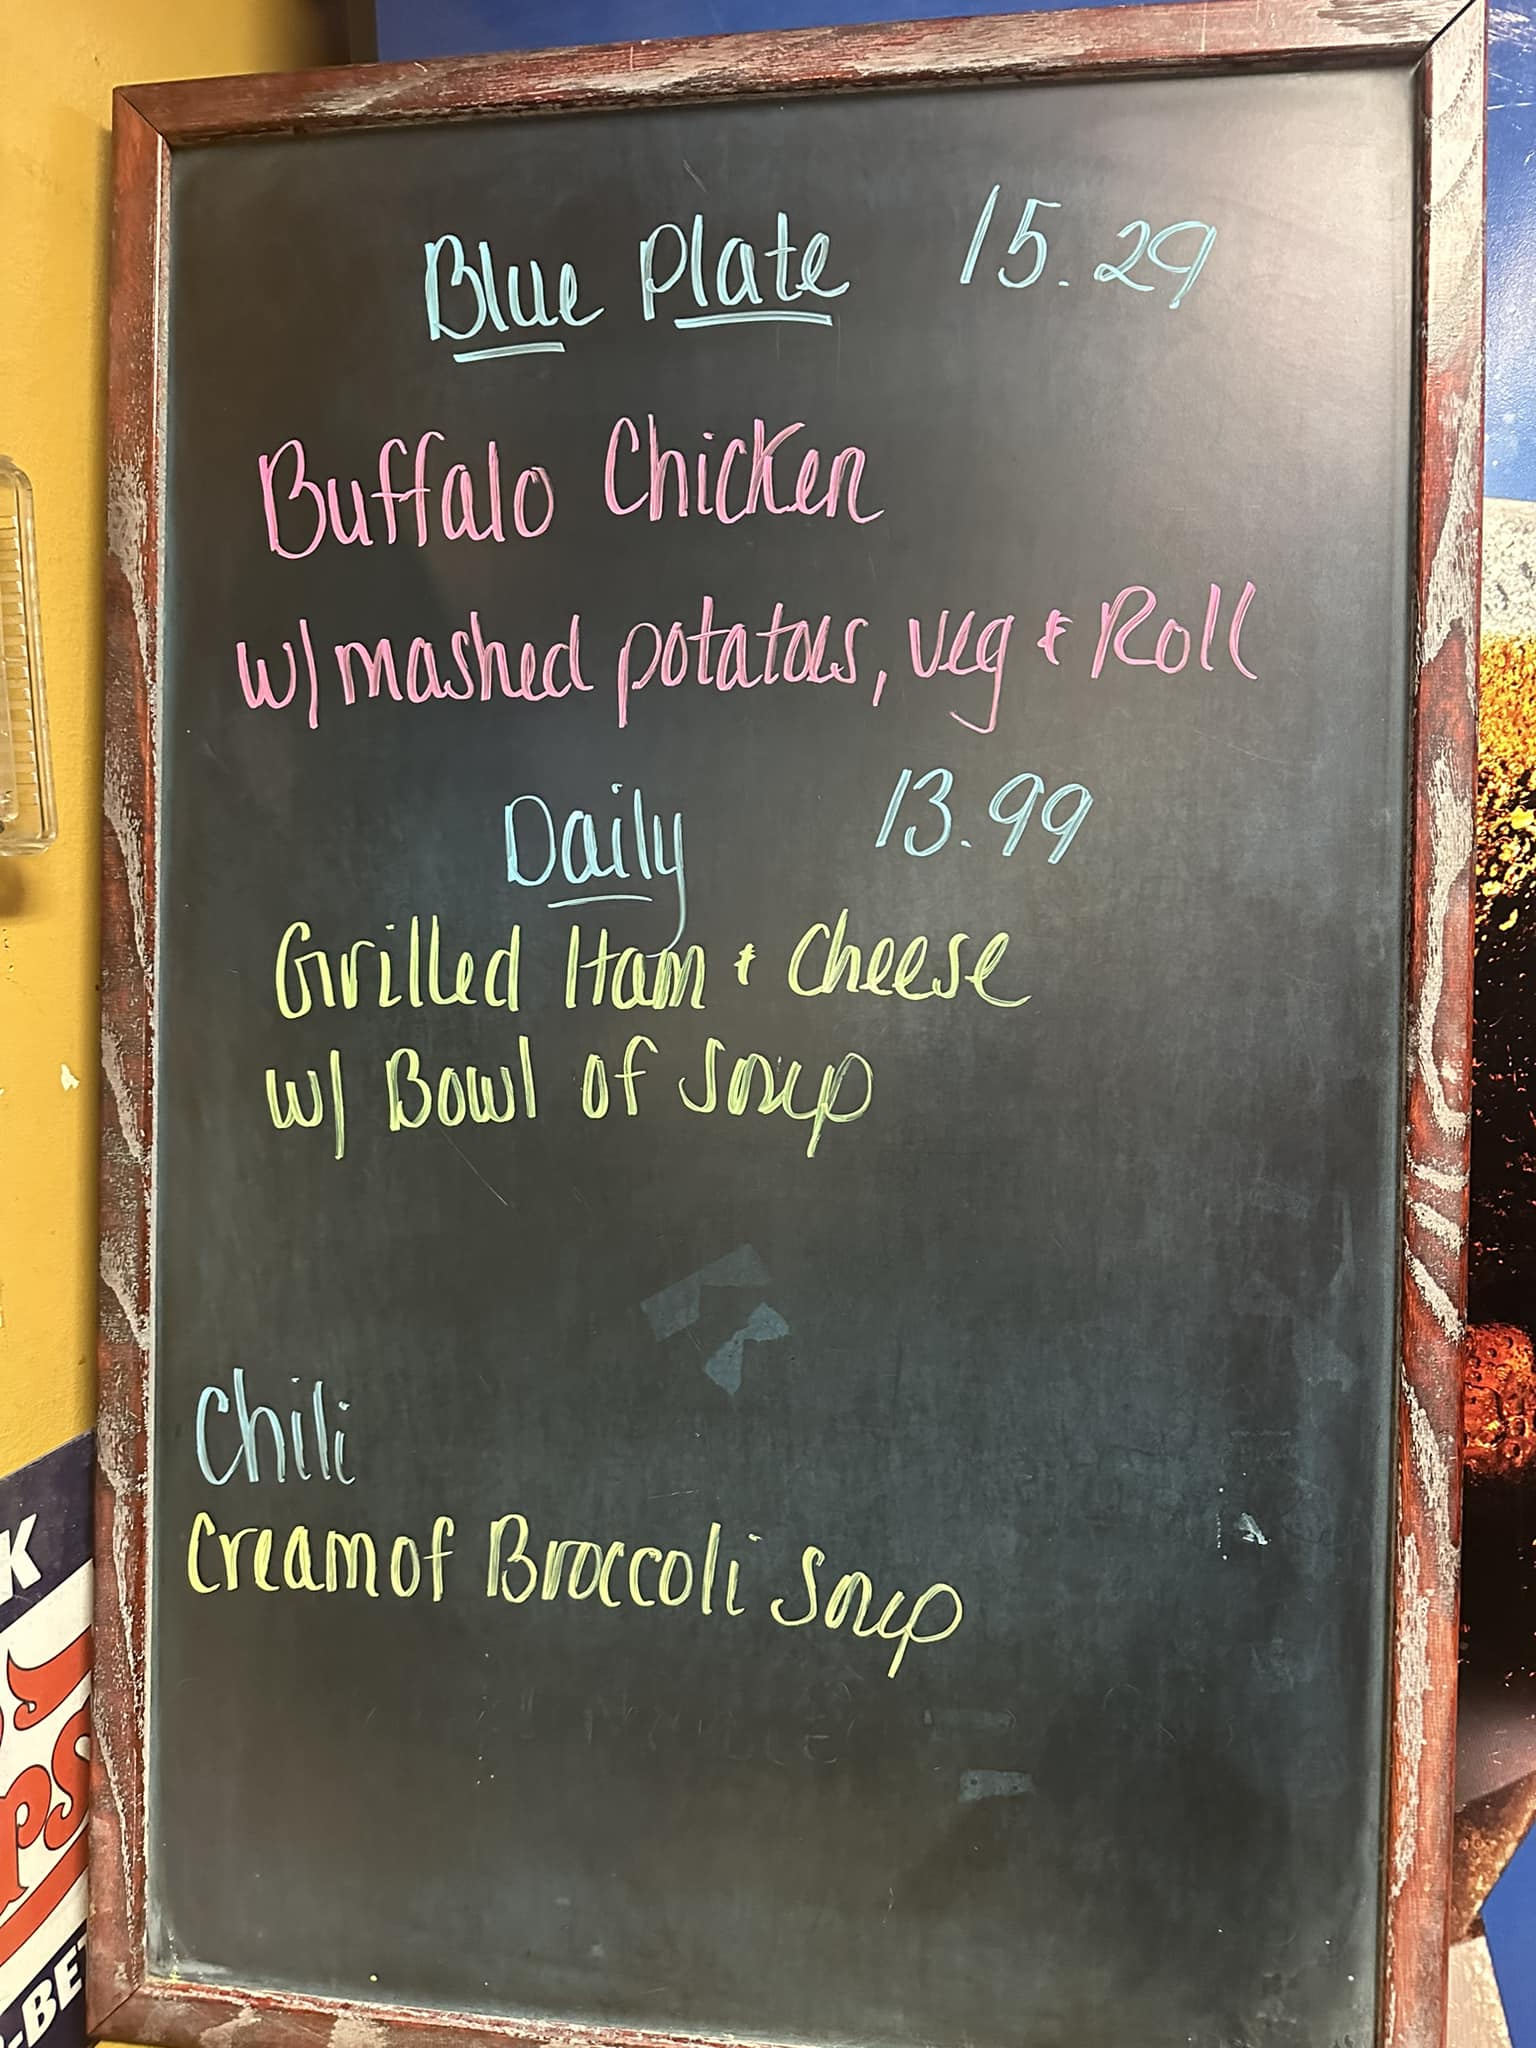 Blue Plate 15.29
Buffalo Chicken
w/ mashed potatoes, veg & Roll
Daily 13.99
Grilled Ham & Cheese
w/ Bowl of Soup
Chili
Cream of Broccoli Soup
K